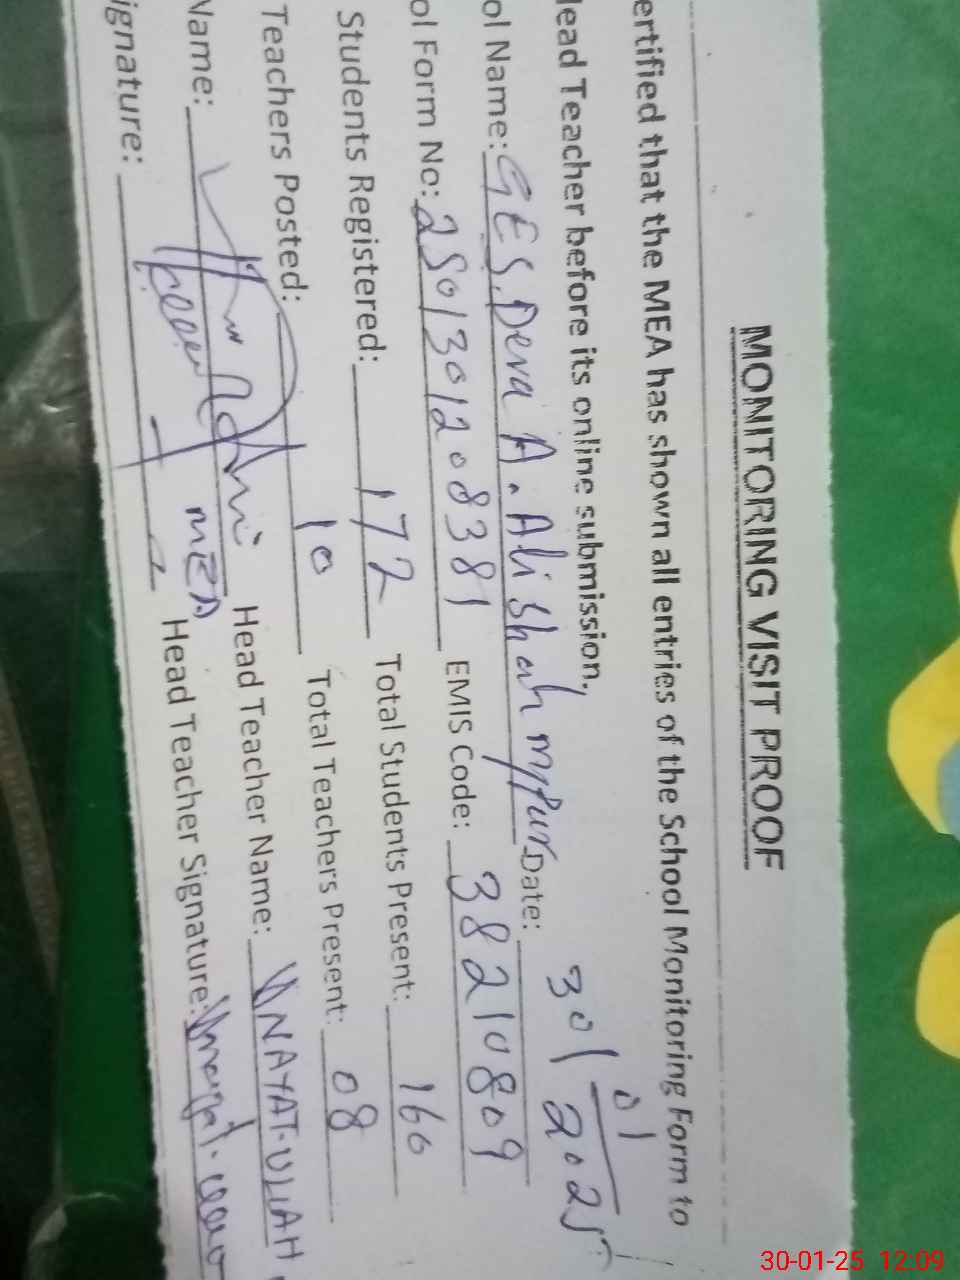 MONITORING VISIT PROOF
ertified that the MEA has shown all entries of the School Monitoring Form to
lead Teacher before its online submission.
ol Name: GES. Deva A. Ali Shah mpur Date: 30/01/2025
ol Form No: 2501301208381 EMIS Code: 38210809
Students Registered: 172 Total Students Present: 160
Teachers Posted: 10 Total Teachers Present: 08
Name: Head Teacher Name: INAYAT-ULLAH
MEA
ignature: Head Teacher Signature:
30-01-25 12:09